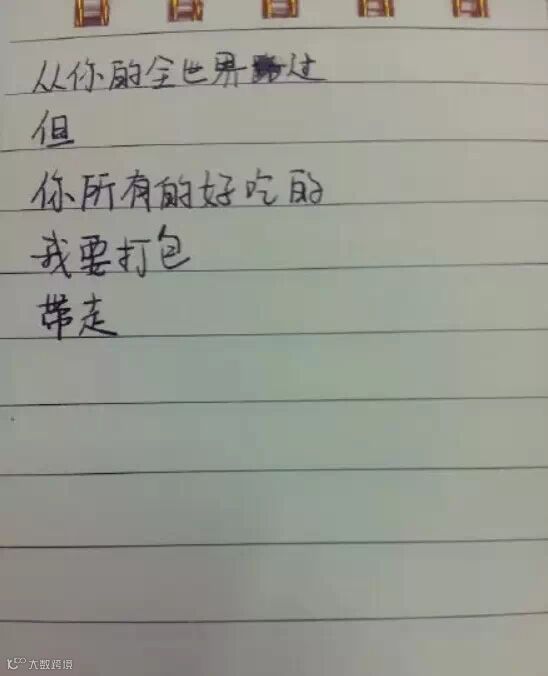 从你的全世界路过
但
你所有的好吃的
我要打包
带走
大数跨境